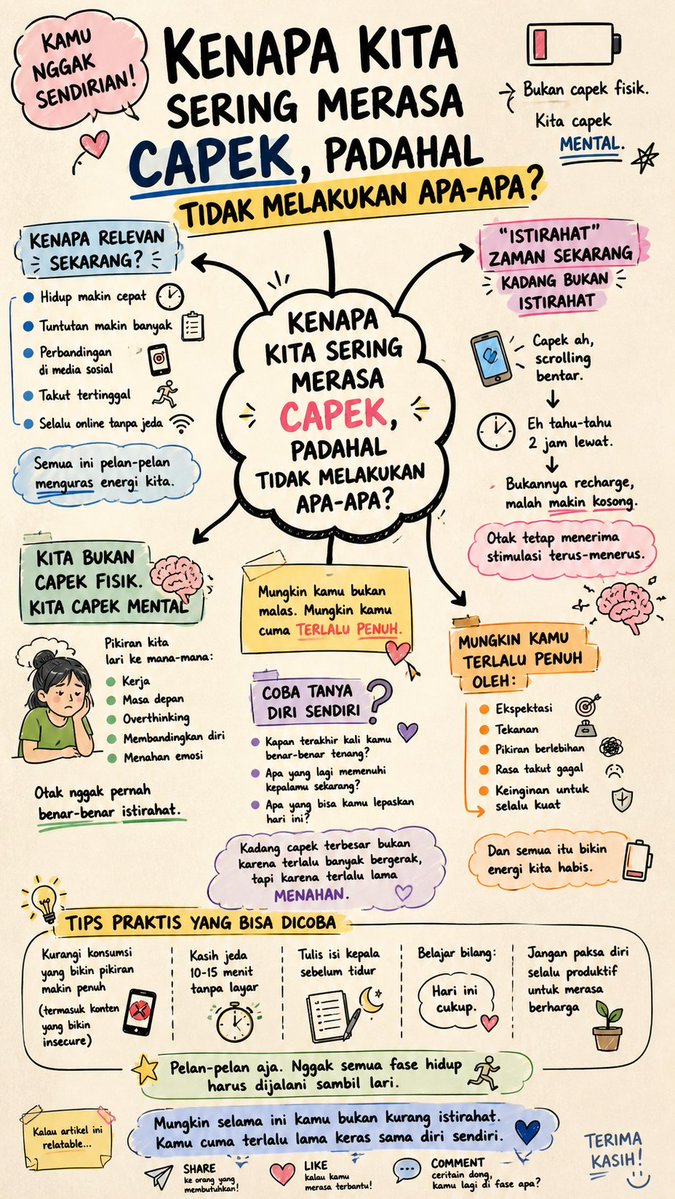 KAMU
NGGAK
SENDIRIAN!
KENAPA KITA
SERING MERASA
CAPEK, PADAHAL
TIDAK MELAKUKAN APA-APA?
Bukan capek fisik.
Kita capek
MENTAL.
KENAPA RELEVAN
SEKARANG?
Hidup makin cepat
Tuntutan makin banyak
Perbandingan
di media sosial
Takut tertinggal
Selalu online tanpa jeda
Semua ini pelan-pelan
menguras energi kita.
KENAPA
KITA SERING
MERASA
CAPEK,
PADAHAL
TIDAK MELAKUKAN
APA-APA?
"ISTIRAHAT"
ZAMAN SEKARANG
KADANG BUKAN
ISTIRAHAT
Capek ah,
scrolling
bentar.
Eh tahu-tahu
2 jam lewat.
Bukannya recharge,
malah makin kosong.
Otak tetap menerima
stimulasi terus-menerus.
KITA BUKAN
CAPEK FISIK.
KITA CAPEK MENTAL
Pikiran kita
lari ke mana-mana:
Kerja
Masa depan
Overthinking
Membandingkan diri
Menahan emosi
Otak nggak pernah
benar-benar istirahat.
Mungkin kamu bukan
malas. Mungkin kamu
cuma TERLALU PENUH.
COBA TANYA
DIRI SENDIRI
?
Kapan terakhir kali kamu
benar-benar tenang?
Apa yang lagi memenuhi
kepalamu sekarang?
Apa yang bisa kamu lepaskan
hari ini?
Kadang capek terbesar bukan
karena terlalu banyak bergerak,
tapi karena terlalu lama
MENAHAN.
MUNGKIN KAMU
TERLALU PENUH
OLEH:
Ekspektasi
Tekanan
Pikiran berlebihan
Rasa takut gagal
Keinginan untuk
selalu kuat
Dan semua itu bikin
energi kita habis.
TIPS PRAKTIS YANG BISA DICOBA
Kurangi konsumsi
yang bikin pikiran
makin penuh
(termasuk konten
yang bikin
insecure)
Kasih jeda
10-15 menit
tanpa layar
Tulis isi kepala
sebelum tidur
Belajar bilang:
Hari ini
cukup.
Jangan paksa diri
selalu produktif
untuk merasa
berharga
Pelan-pelan aja. Nggak semua fase hidup
harus dijalani sambil lari.
Mungkin selama ini kamu bukan kurang istirahat.
Kamu cuma terlalu lama keras sama diri sendiri.
Kalau artikel ini
relatable...
SHARE
ke orang yang
membutuhkan!
LIKE
kalau kamu
merasa terbantu!
COMMENT
ceritain dong,
kamu lagi di fase apa?
TERIMA
KASIH!